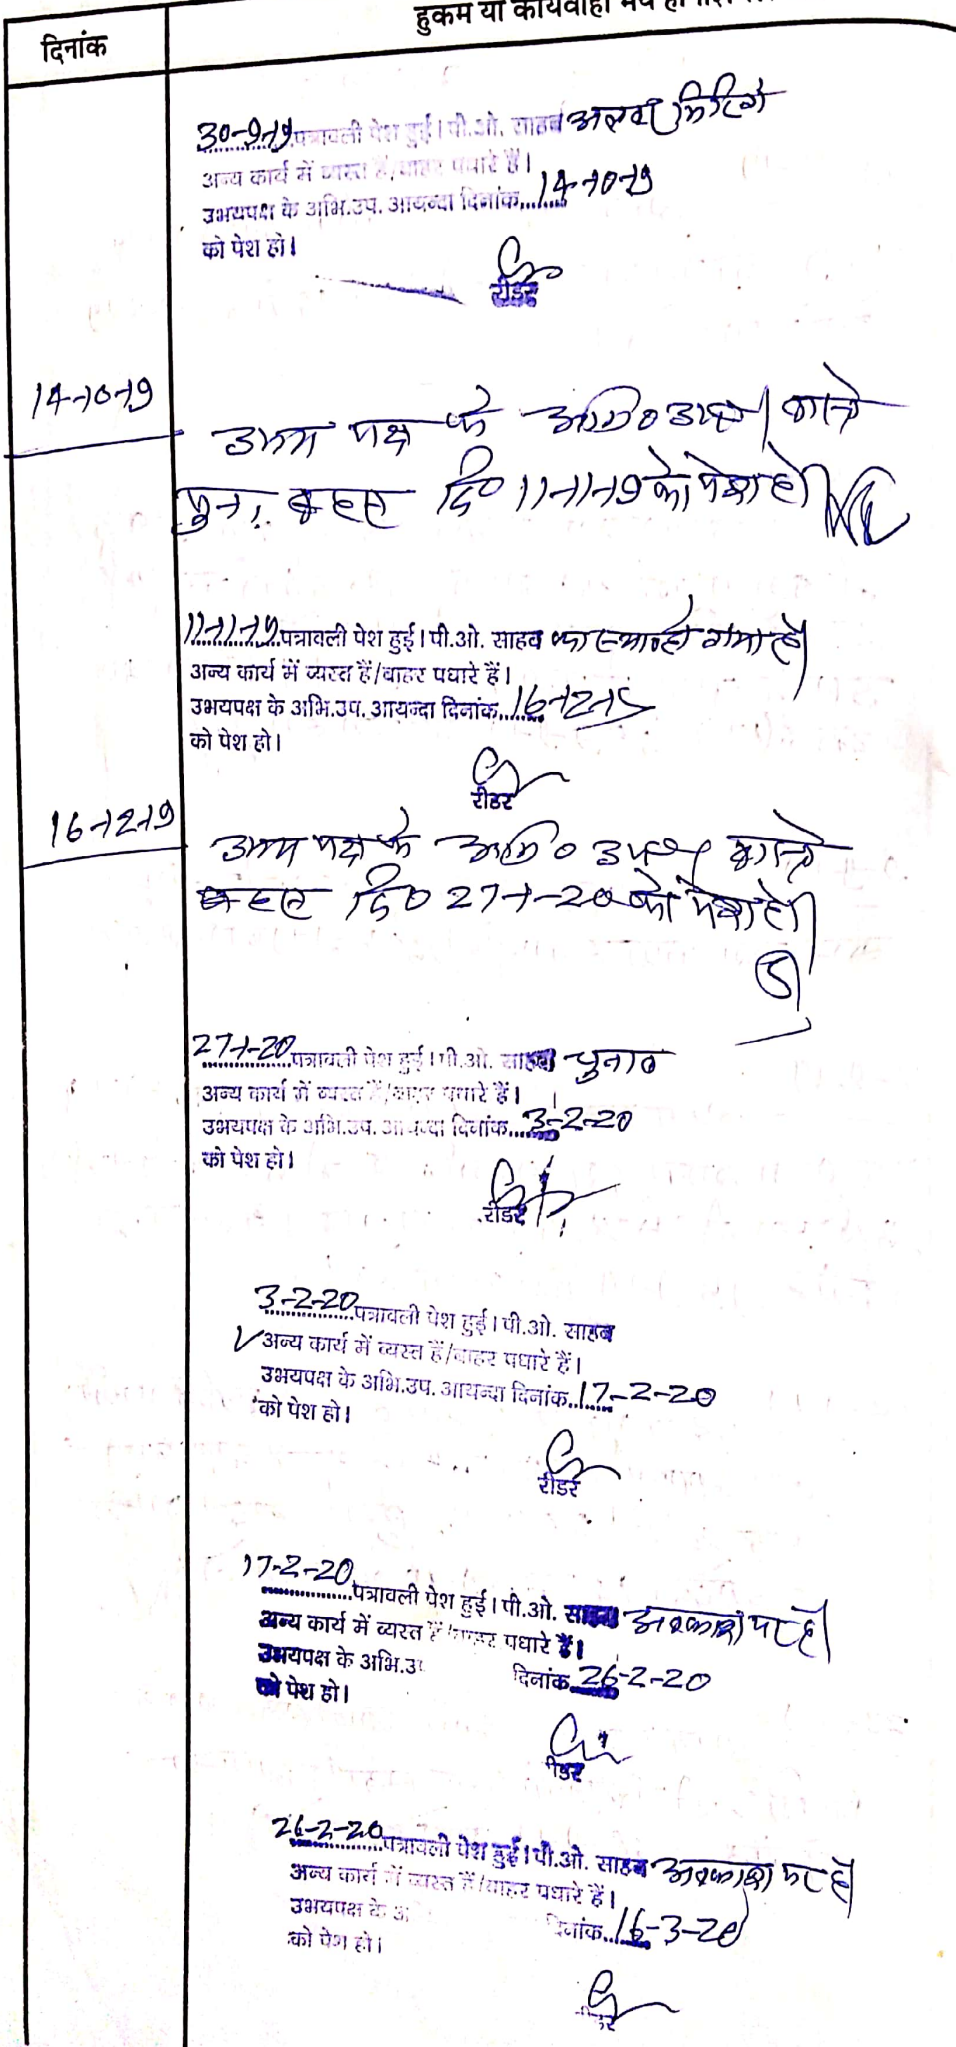 हुकम या कार्यवाही मय
दिनांक
30-9-19 पत्रावली पेश हुई। पी.ओ. साहब अलवर मिटिंग
अन्य कार्य में व्यस्त हैं/बाहर पधारे हैं।
उभयपक्ष के अभि.उप. आयन्दा दिनांक.. 14-10-19
को पेश हो।
रीडर
14-10-19
उभय पक्ष के अभि० उप०। वास्ते
पुनः बहस दि० 11-11-19 को पेश हो।
11-11-19 पत्रावली पेश हुई। पी.ओ. साहब का स्था० हो गया है।
अन्य कार्य में व्यस्त हैं/बाहर पधारे हैं।
उभयपक्ष के अभि.उप. आयन्दा दिनांक.. 16-12-19
को पेश हो।
रीडर
16-12-19
उभय पक्ष के अभि० उप० वास्ते
बहस दि० 27-1-20 को पेश हो।
27-1-20 पत्रावली पेश हुई। पी.ओ. साहब चुनाव
अन्य कार्य में व्यस्त हैं/बाहर पधारे हैं।
उभयपक्ष के अभि.उप. आयन्दा दिनांक.. 3-2-20
को पेश हो।
रीडर
3-2-20 पत्रावली पेश हुई। पी.ओ. साहब
✓ अन्य कार्य में व्यस्त हैं/बाहर पधारे हैं।
उभयपक्ष के अभि.उप. आयन्दा दिनांक.. 17-2-20
को पेश हो।
रीडर
17-2-20 पत्रावली पेश हुई। पी.ओ. साहब अवकाश पर है।
अन्य कार्य में व्यस्त हैं/बाहर पधारे हैं।
उभयपक्ष के अभि.उ दिनांक 26-2-20
को पेश हो।
रीडर
26-2-20 पत्रावली पेश हुई। पी.ओ. साहब अवकाश पर है।
अन्य कार्य में व्यस्त हैं/बाहर पधारे हैं।
उभयपक्ष के अ दिनांक.. 16-3-20
को पेश हो।
रीडर